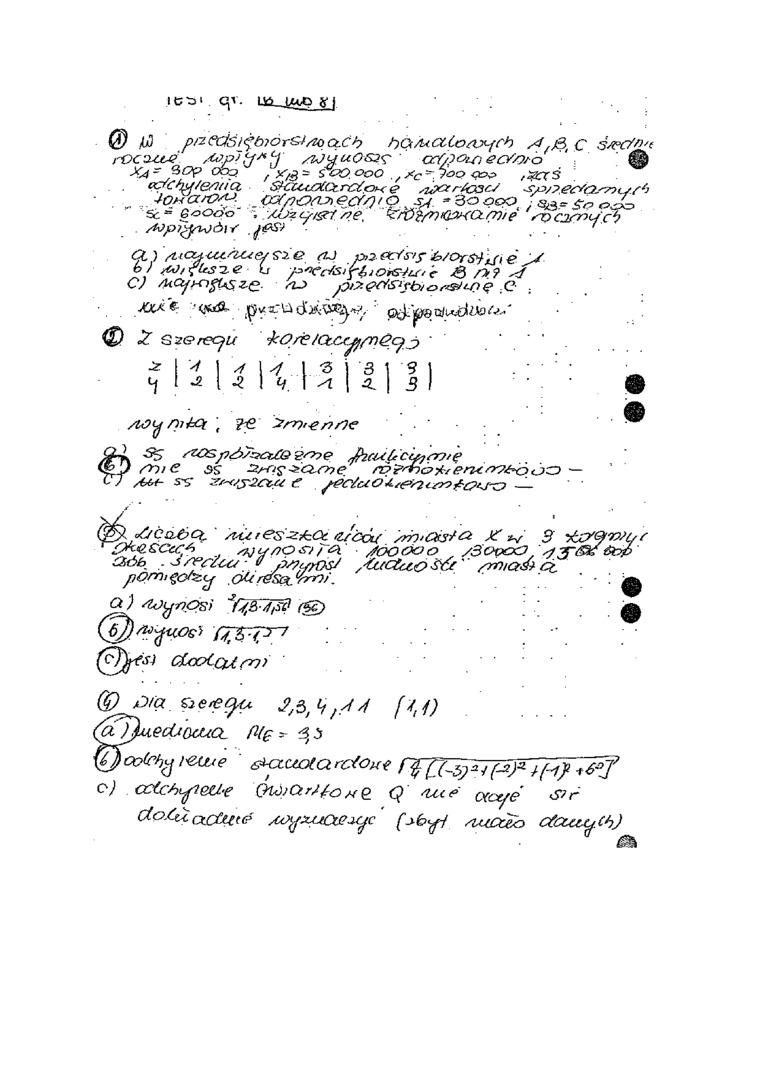 TEST gr. (B lub 8)
① W przedsiębiorstwach handlowych A, B, C średnie
roczne wpływy wynoszą odpowiednio
XA = 300 000, XB = 500.000, XC = 700 000, zaś
odchylenia standardowe wartości sprzedanych
towarów odpowiednio SA = 30 000, SB = 50 000
SC = 60000. względne zróżnicowanie rocznych
wpływów jest
a) najmniejsze w przedsiębiorstwie A
b) większe w przedsiębiorstwie B niż A
c) największe w przedsiębiorstwie C
nie ma prawdziwej odpowiedzi
② Z szeregu korelacyjnego
z | 1 | 1 | 1 | 3 | 3 | 3 |
y | 2 | 2 | 4 | 1 | 2 | 3 |
wynika, że zmienne
a) są współzależne funkcyjnie
b) nie są związane różnokierunkowo –
c) nie są związane jednokierunkowo –
③ Liczba mieszkańców miasta X w 3 kolejnych
okresach wynosiła 100000 130000, 156 000
osób. Średni przyrost ludności miasta
pomiędzy okresami.
a) wynosi ³√1,3·1,56 (56)
b) wynosi √1,3·1,2
c) jest dodatni
④ Dla szeregu 2,3,4,11 (1,1)
a) mediana ME = 3,5
b) odchylenie standardowe √¼[(-3)²+(-2)²+(-1)²+6²]
c) odchylenie ćwiartkowe Q nie daje się
dokładnie wyznaczyć (zbyt mało danych)